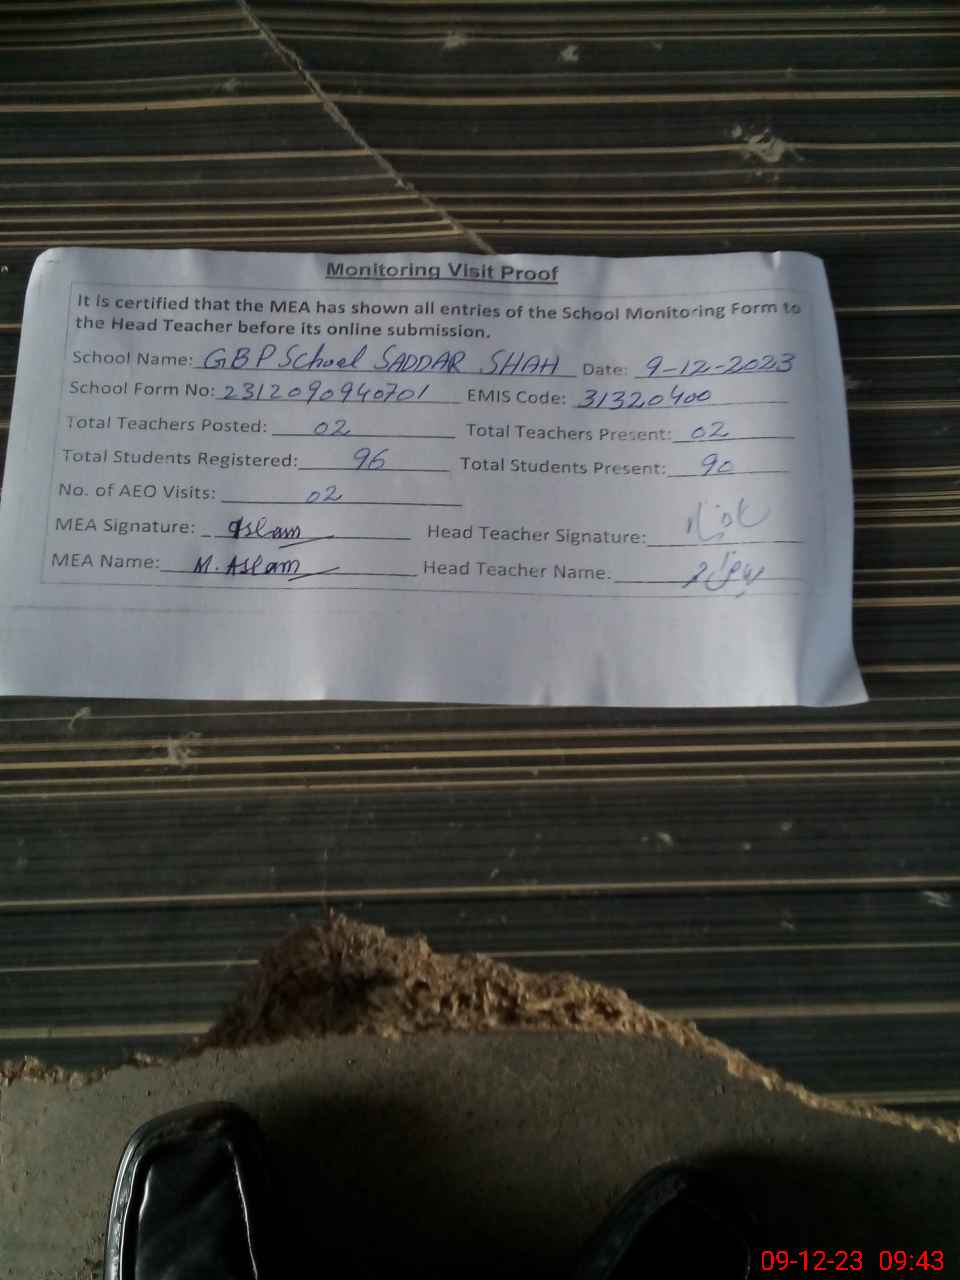 Monitoring Visit Proof
It is certified that the MEA has shown all entries of the School Monitoring Form to
the Head Teacher before its online submission.
School Name: GBP School SADDAR SHAH Date: 9-12-2023
School Form No: 2312090940701 EMIS Code: 31320400
Total Teachers Posted: 02 Total Teachers Present: 02
Total Students Registered: 96 Total Students Present: 90
No. of AEO Visits: 02
MEA Signature: Aslam Head Teacher Signature:
MEA Name: M. Aslam Head Teacher Name:
09-12-23 09:43